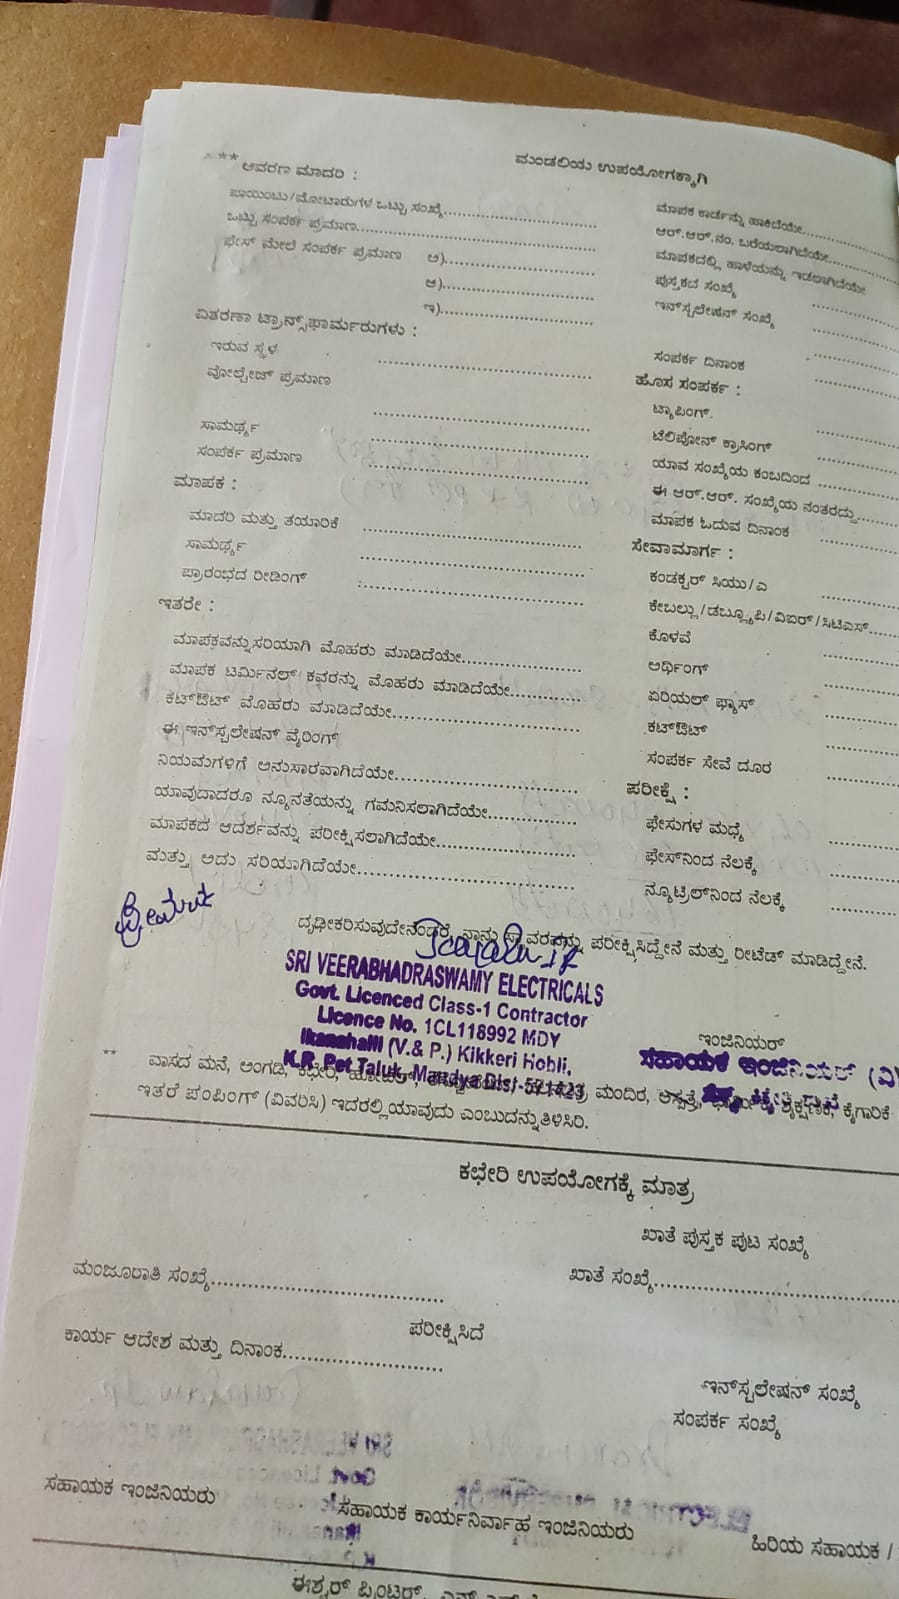 ಮಂಡಲಿಯ ಉಪಯೋಗಕ್ಕಾಗಿ
** ಆವರಣ ಮಾದರಿ :
ಪಾಯಿಂಟು/ಮೋಟಾರುಗಳ ಒಟ್ಟು ಸಂಖ್ಯೆ
ಒಟ್ಟು ಸಂಪರ್ಕ ಪ್ರಮಾಣ
ಫೇಸ್ ಮೇಲೆ ಸಂಪರ್ಕ ಪ್ರಮಾಣ ಅ)
ಆ)
ಇ)
ವಿತರಣಾ ಟ್ರಾನ್ಸ್‌ಫಾರ್ಮರುಗಳು :
ಇರುವ ಸ್ಥಳ
ವೋಲ್ಟೇಜ್ ಪ್ರಮಾಣ
ಸಾಮರ್ಥ್ಯ
ಸಂಪರ್ಕ ಪ್ರಮಾಣ
ಮಾಪಕ :
ಮಾದರಿ ಮತ್ತು ತಯಾರಿಕೆ
ಸಾಮರ್ಥ್ಯ
ಪ್ರಾರಂಭದ ರೀಡಿಂಗ್
ಇತರೇ :
ಮಾಪಕವನ್ನುಸರಿಯಾಗಿ ಮೊಹರು ಮಾಡಿದೆಯೇ
ಮಾಪಕ ಟರ್ಮಿನಲ್ ಕವರನ್ನು ಮೊಹರು ಮಾಡಿದೆಯೇ
ಕಟ್‌ಔಟ್ ಮೊಹರು ಮಾಡಿದೆಯೇ
ಈ ಇನ್‌ಸ್ಪಲೇಷನ್ ವೈರಿಂಗ್
ನಿಯಮಗಳಿಗೆ ಅನುಸಾರವಾಗಿದೆಯೇ
ಯಾವುದಾದರೂ ನ್ಯೂನತೆಯನ್ನು ಗಮನಿಸಲಾಗಿದೆಯೇ
ಮಾಪಕದ ಆದರ್ಶವನ್ನು ಪರೀಕ್ಷಿಸಲಾಗಿದೆಯೇ
ಮತ್ತು ಅದು ಸರಿಯಾಗಿದೆಯೇ
ಮಾಪಕ ಕಾರ್ಡನ್ನು ಹಾಕಿದೆಯೇ
ಆರ್.ಆರ್.ನಂ. ಬರೆಯಲಾಗಿದೆಯೇ
ಮಾಪಕದಲ್ಲಿ ಹಾಳೆಯನ್ನು ಇಡಲಾಗಿದೆಯೇ
ಪುಸ್ತಕದ ಸಂಖ್ಯೆ
ಇನ್‌ಸ್ಪಲೇಷನ್ ಸಂಖ್ಯೆ
ಸಂಪರ್ಕ ದಿನಾಂಕ
ಹೊಸ ಸಂಪರ್ಕ :
ಟ್ಯಾಪಿಂಗ್
ಟೆಲಿಫೋನ್ ಕ್ರಾಸಿಂಗ್
ಯಾವ ಸಂಖ್ಯೆಯ ಕಂಬದಿಂದ
ಈ ಆರ್.ಆರ್. ಸಂಖ್ಯೆಯ ನಂತರದ್ದು
ಮಾಪಕ ಓದುವ ದಿನಾಂಕ
ಸೇವಾಮಾರ್ಗ :
ಕಂಡಕ್ಟರ್ ಸಿಯು/ಎ
ಕೇಬಲ್ಲು/ಡಬ್ಲ್ಯೂಪಿ/ವಿಐರ್/ಸಿಟಿಎಸ್
ಕೊಳವೆ
ಅರ್ಥಿಂಗ್
ಏರಿಯಲ್ ಫ್ಯೂಸ್
ಕಟ್‌ಔಟ್
ಸಂಪರ್ಕ ಸೇವೆ ದೂರ
ಪರೀಕ್ಷೆ :
ಫೇಸುಗಳ ಮಧ್ಯೆ
ಫೇಸ್‌ನಿಂದ ನೆಲಕ್ಕೆ
ನ್ಯೂಟ್ರಿಲ್‌ನಿಂದ ನೆಲಕ್ಕೆ
ದೃಢೀಕರಿಸುವುದೇನೆಂದರೆ, ನಾನು ಸ್ಥಾವರವನ್ನು ಪರೀಕ್ಷಿಸಿದ್ದೇನೆ ಮತ್ತು ರೀಟೆಡ್ ಮಾಡಿದ್ದೇನೆ.
SRI VEERABHADRASWAMY ELECTRICALS
Govt. Licenced Class-1 Contractor
Licence No. 1CL118992 MDY
Ikanahalli (V.& P.) Kikkeri Hobli,
K.R. Pet Taluk, Mandya Dist-571423
ಇಂಜಿನಿಯರ್
ಸಹಾಯಕ ಇಂಜಿನಿಯರ್ (ವಿ)
** ವಾಸದ ಮನೆ, ಅಂಗಡಿ, ಕಛೇರಿ, ಮಂದಿರ, ಆಸ್ಪತ್ರೆ, ಶೈಕ್ಷಣಿಕ, ಕೈಗಾರಿಕೆ
ಇತರೆ ಪಂಪಿಂಗ್ (ವಿವರಿಸಿ) ಇದರಲ್ಲಿಯಾವುದು ಎಂಬುದನ್ನುತಿಳಿಸಿರಿ.
ಕಛೇರಿ ಉಪಯೋಗಕ್ಕೆ ಮಾತ್ರ
ಖಾತೆ ಪುಸ್ತಕ ಪುಟ ಸಂಖ್ಯೆ
ಮಂಜೂರಾತಿ ಸಂಖ್ಯೆ
ಖಾತೆ ಸಂಖ್ಯೆ
ಪರೀಕ್ಷಿಸಿದೆ
ಕಾರ್ಯ ಆದೇಶ ಮತ್ತು ದಿನಾಂಕ
ಇನ್‌ಸ್ಪಲೇಷನ್ ಸಂಖ್ಯೆ
ಸಂಪರ್ಕ ಸಂಖ್ಯೆ
ಸಹಾಯಕ ಇಂಜಿನಿಯರು
ಸಹಾಯಕ ಕಾರ್ಯನಿರ್ವಾಹ ಇಂಜಿನಿಯರು
ಹಿರಿಯ ಸಹಾಯಕ /